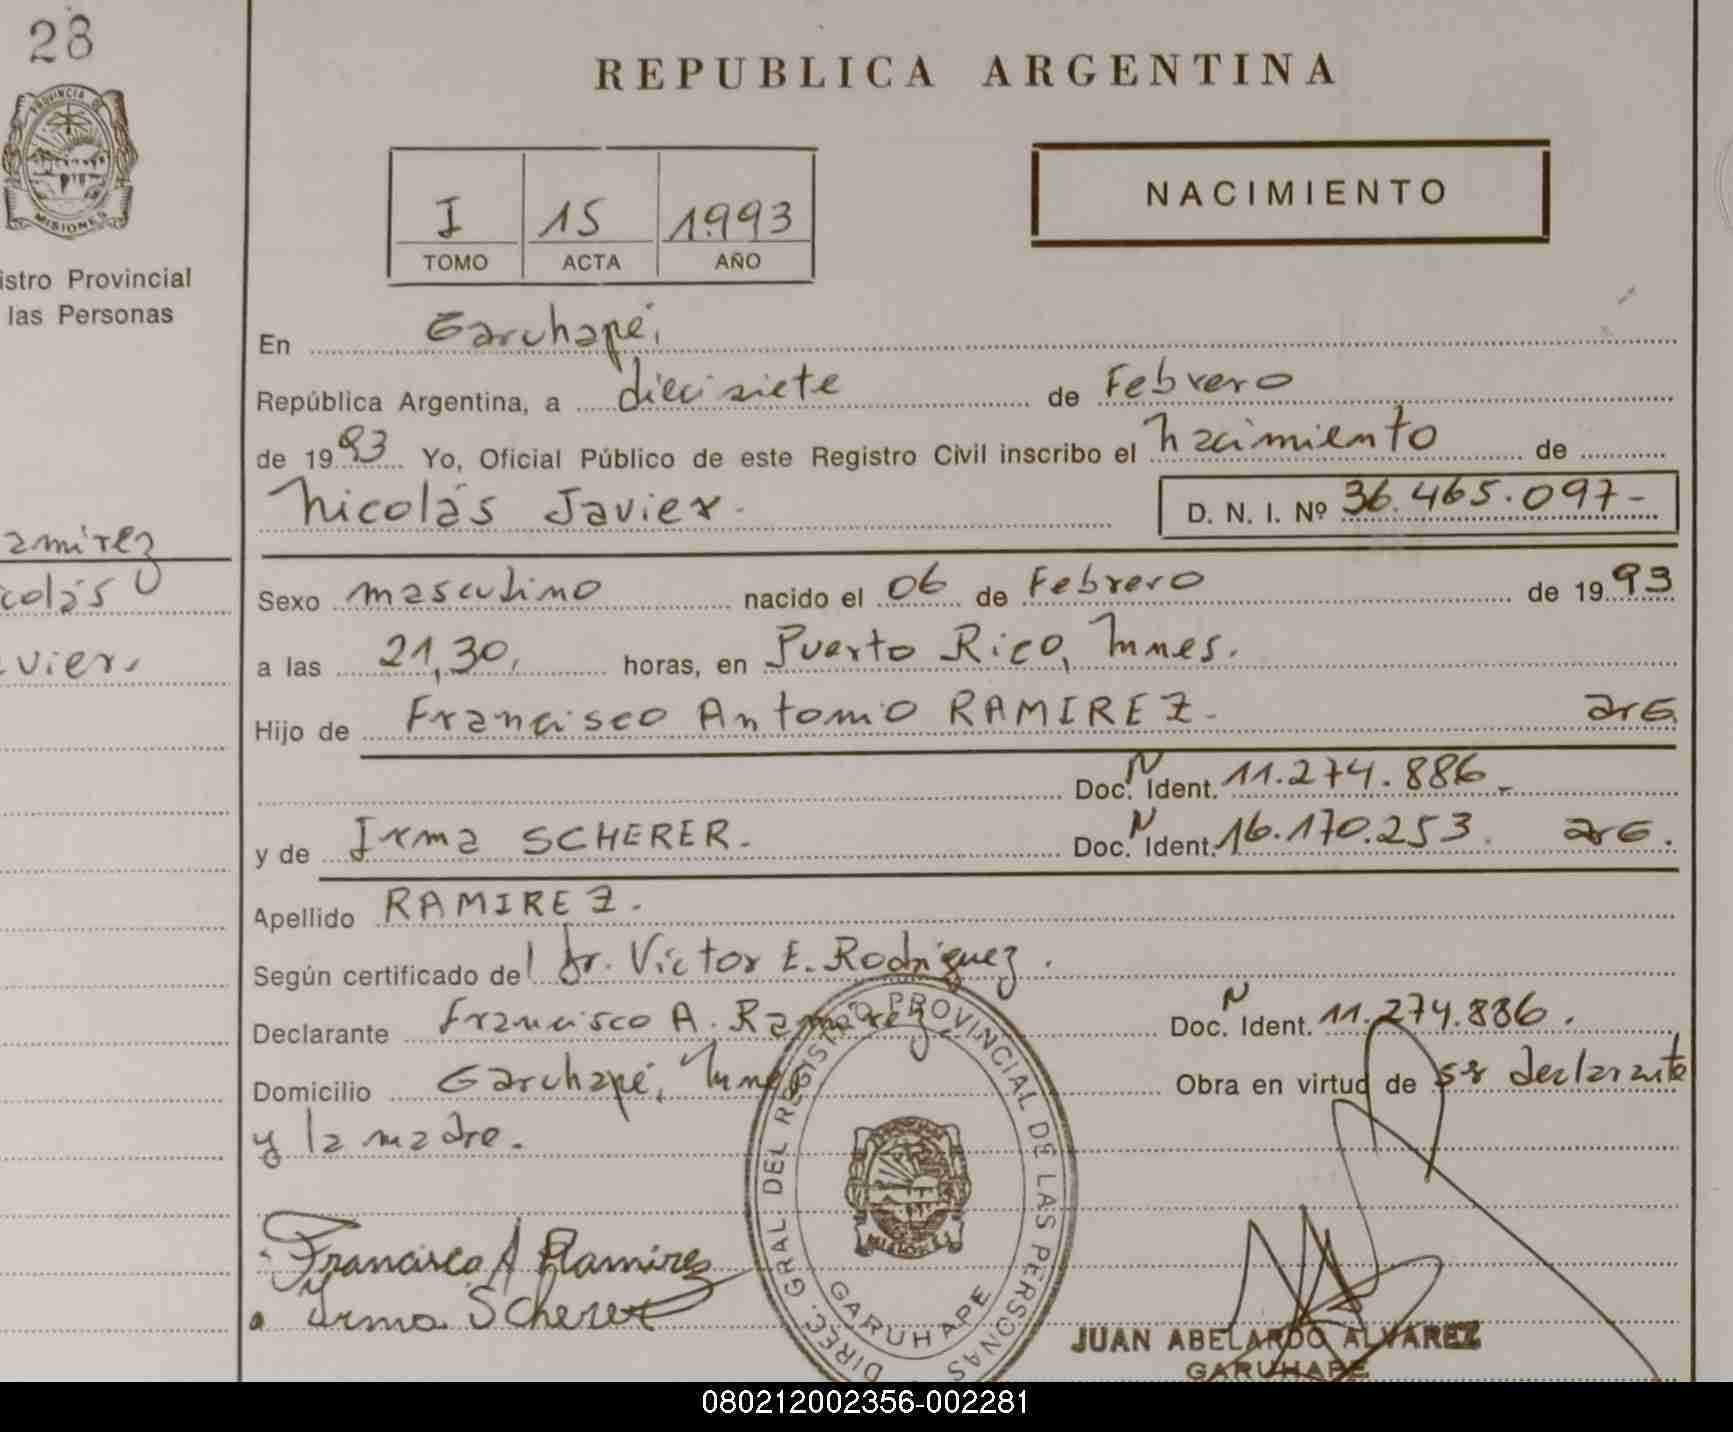 28
REPUBLICA ARGENTINA
PROVINCIA DE
MISIONES
NACIMIENTO
I 15 1993
TOMO ACTA AÑO
istro Provincial
las Personas
En Garuhapé,
República Argentina, a diecisiete de Febrero
de 1993 Yo, Oficial Público de este Registro Civil inscribo el nacimiento de
Nicolás Javier. D. N. I. Nº 36.465.097-
amirez
colás
Sexo masculino nacido el 06 de Febrero de 1993
vier.
a las 21,30, horas, en Puerto Rico, Mnes.
Hijo de Francisco Antonio RAMIREZ. arG
Doc. N Ident. 11.274.886
y de Irma SCHERER. Doc. N Ident. 16.170.253 arG.
Apellido RAMIREZ.
Según certificado del Dr. Victor E. Rodriguez.
Declarante Francisco A. Ramirez Doc. N Ident. 11.274.886.
Domicilio Garuhapé, Mnes Obra en virtud de ser declarante
y la madre.
Francisco A Ramirez
y Irma Scherer
DIREC. GRAL. DEL REGISTRO PROVINCIAL DE LAS PERSONAS
MISIONES
GARUHAPE
JUAN ABELARDO ALVAREZ
GARUHAPE
080212002356-002281